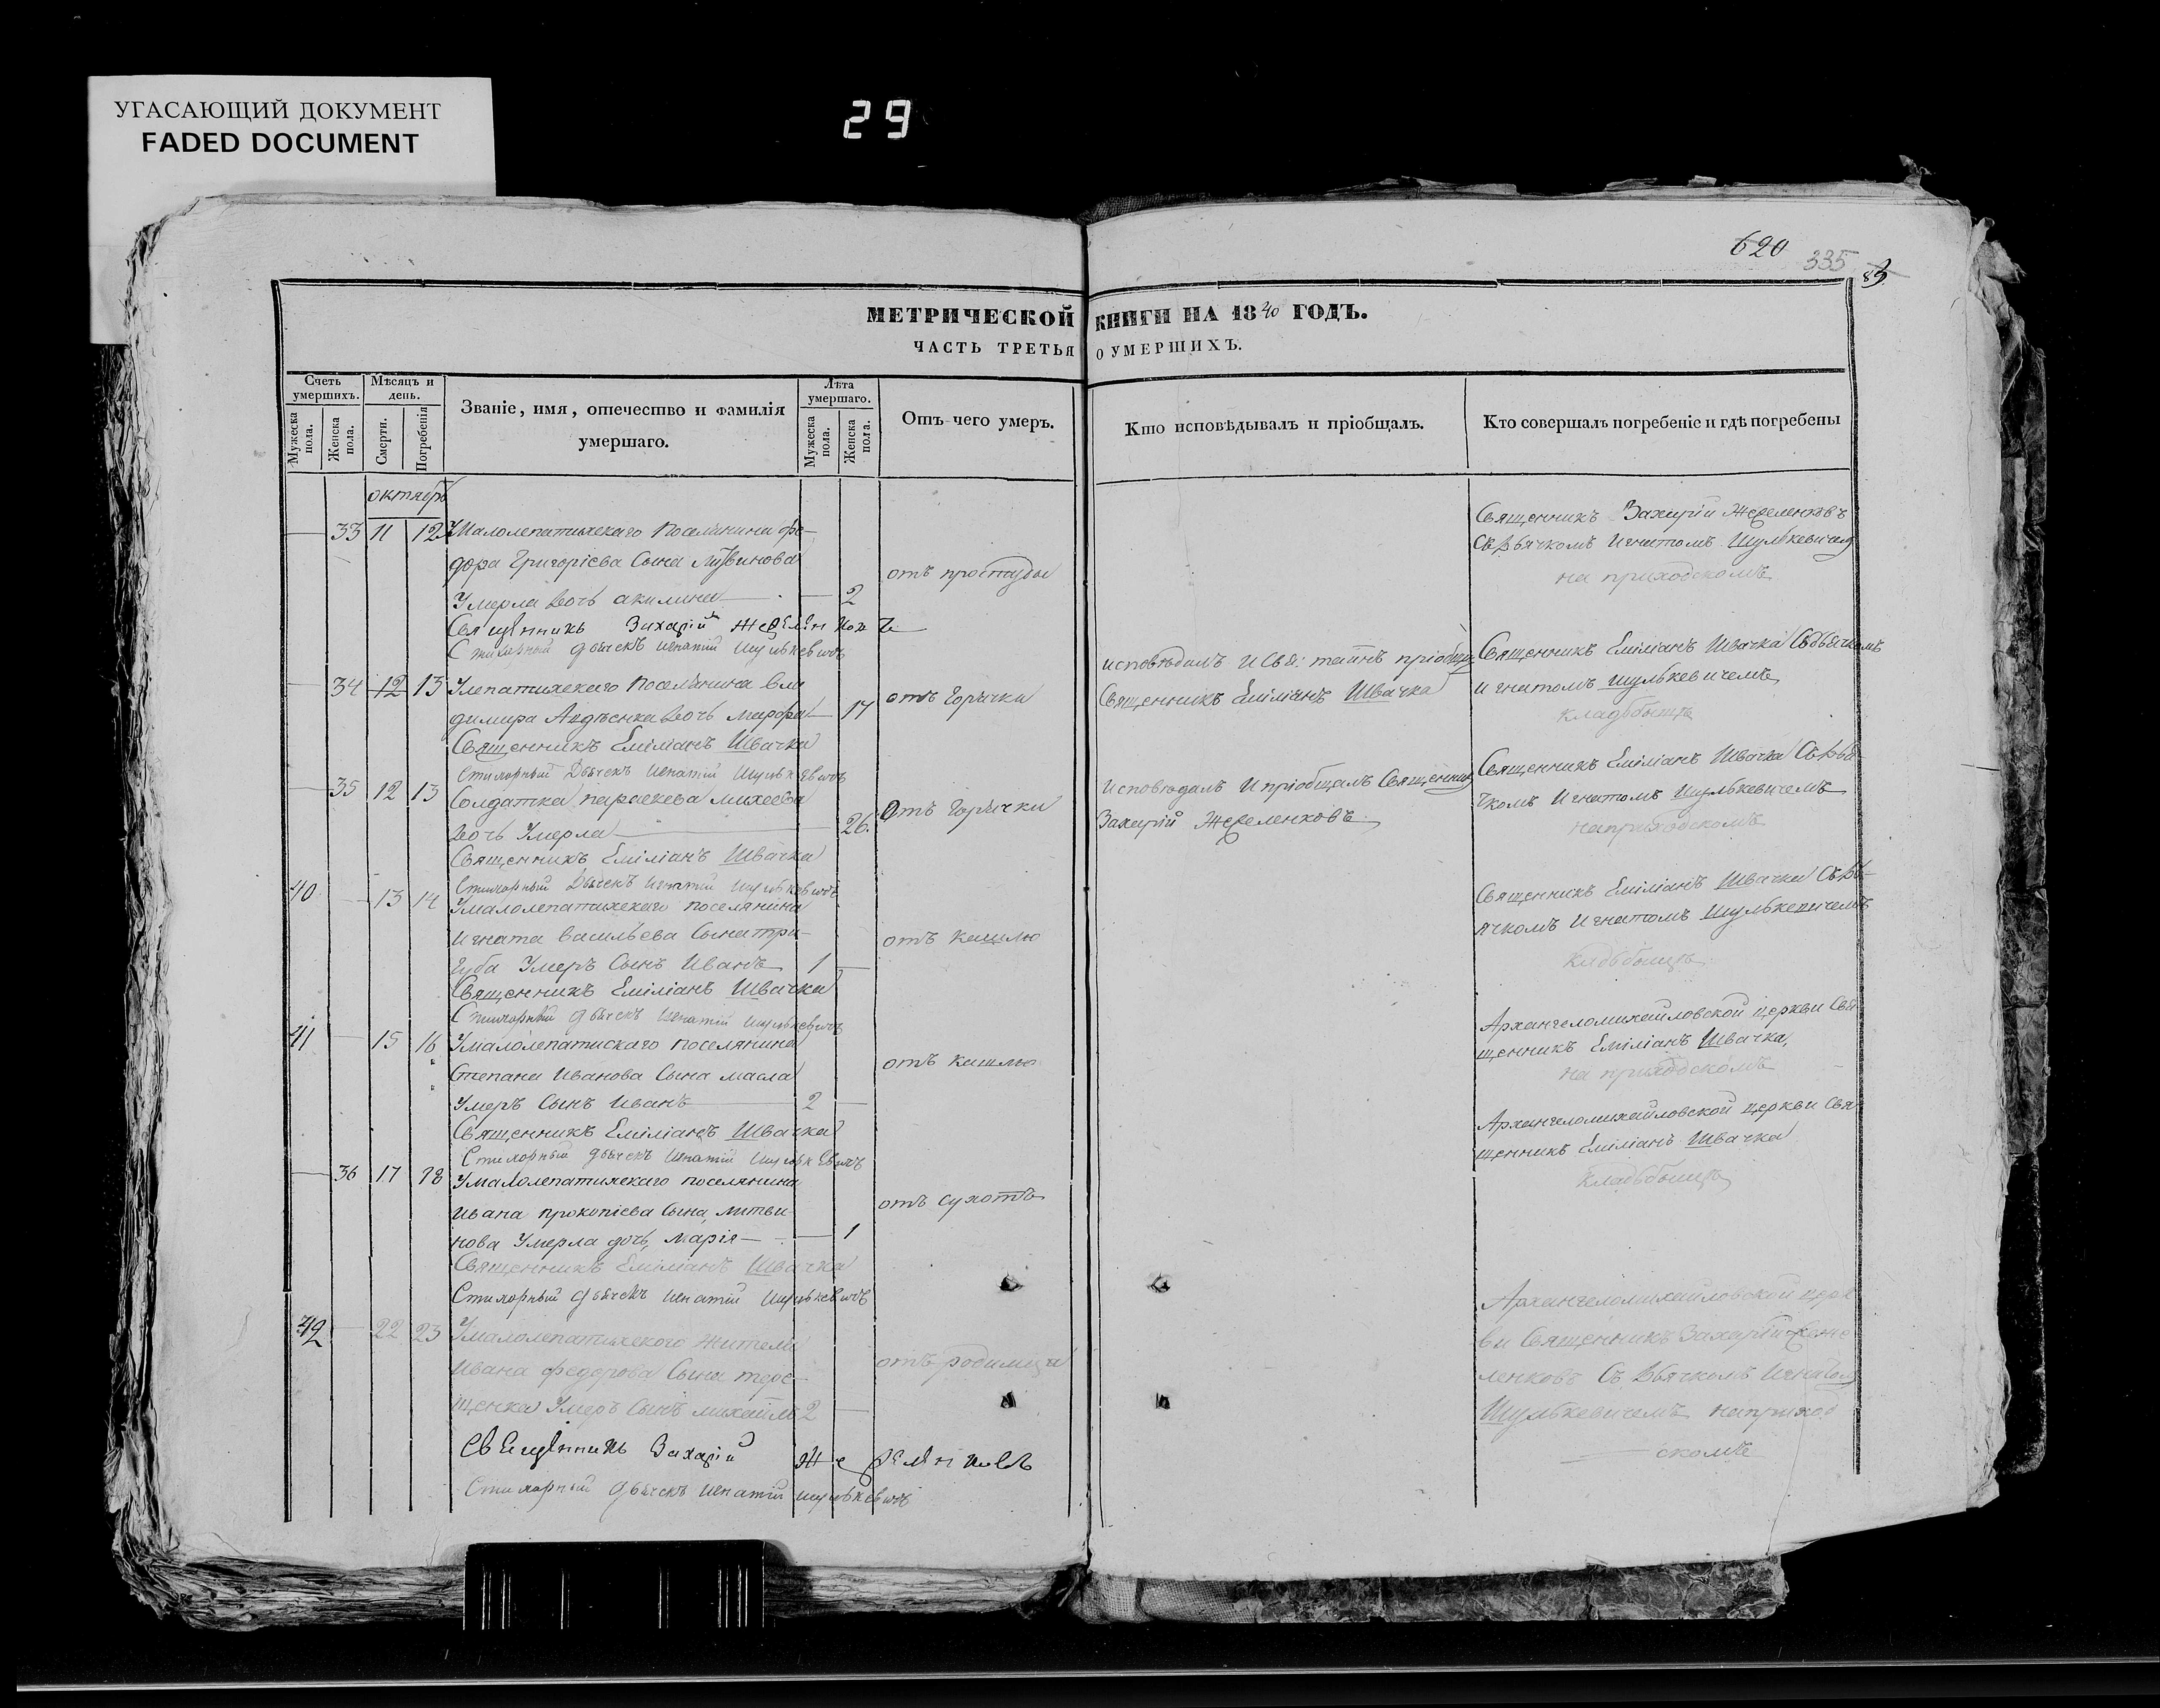 УГАСАЮЩИЙ ДОКУМЕНТ
FADED DOCUMENT
29
620
335
МЕТРИЧЕСКОЙ КНИГИ НА 1840 ГОДЪ.
ЧАСТЬ ТРЕТЬЯ О УМЕРШИХЪ.
Счетъ умершихъ.
Мужеска пола.
Женска пола.
Мѣсяцъ и день.
Смерти.
Погребенія
Званіе, имя, отечество и фамилія умершаго.
Лѣта умершаго.
Мужеска пола.
Женска пола.
Отъ чего умеръ.
Кто исповѣдывалъ и пріобщалъ.
Кто совершалъ погребеніе и гдѣ погребены
октябрь
33 11 12 Умалолепатихскаго Поселянина фе-
дора Григорієва Сына
Умерла дочь акилина 2
отъ простуды
Священникъ Захарій Жереленковъ
Съ Дьячкомъ Игнатомъ Шулькевичем
на приходскомъ
Священникъ Захарій
Стихарный дьячекъ Игнатій Шулькевичъ
34 12 13 Улепатихскаго Поселянина вла
димира Авдѣенка дочь марфа 17
отъ Горячки
исповѣдалъ И Свя: таинъ пріобщи
Священникъ Емиліанъ Швачка
Священникъ Емиліанъ Швачка Съ дьячкомъ
игнатомъ шулькевичемъ
кладьбыщъ
Священникъ Емиліанъ Швачка
Стихарный Дьячекъ Игнатій Шулькевичъ
35 12 13 Солдатка параскева михеева
дочь Умерла 26
Отъ Горячки
Исповѣдалъ И пріобщалъ Священник
Захарій Жереленковъ
Священникъ Емиліанъ Швачка Съ Дья-
чкомъ Игнатомъ Шулькевичемъ
на приходскомъ
Священникъ Емиліанъ Швачка
Стихарный Дьячекъ Игнатій Шулькевичъ
40 13 14 Умалолепатихскаго поселянина
Игната васильева Сына три-
губа Умеръ Сынъ Иванъ 1
отъ кашлю
Священникъ Емиліанъ Швачка Съ Дь-
ячкомъ Игнатомъ Шулькевичемъ
Священникъ Емиліанъ Швачка
Стихарный дьячекъ Игнатій Шулькевичъ
41 15 16 Умалолепатискаго поселянина
Степана Иванова Сына масла
Умеръ Сынъ Иванъ 2
отъ кашлю
Архангеломихайловской церкви Свя
щенникъ Емиліанъ Швачка,
на приходскомъ
Священникъ Емиліанъ Швачка
Стихарный дьячекъ Игнатій Шулькевичъ
36 17 18 Умалолепатихскаго поселянина
Ивана прокопієва Сына, литви-
нова Умерла дочь, Марія 1
отъ сухотъ
Архангеломихайловской церкви Свя
щенникъ Емиліанъ Швачка
кладьбыщъ
Священникъ Емиліанъ Швачка
Стихарный дьячекъ Игнатій Шулькевичъ
42 22 23 Умалолепатихскаго жителя
Ивана федорова Сына тере-
щенка Умеръ Сынъ михаилъ 2
отъ родимца
Архангеломихайловской церк
ви Священникъ Захарій Жере
ленковъ Съ Дьячкомъ Игнатом
Шулькевичемъ на приход
скомъ
Священникъ Захарій Жереленковъ
Стихарный дьячекъ Игнатій Шулькевичъ